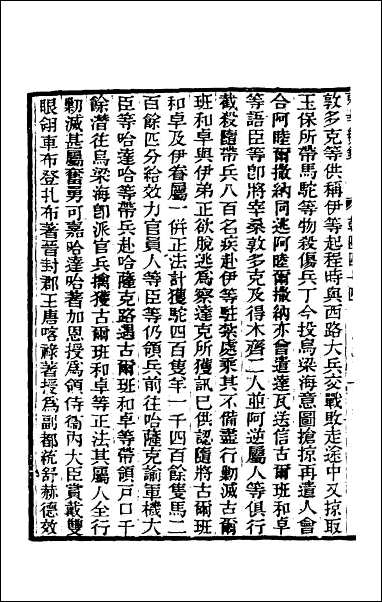 敦多克等供稱伊等起程時與西路大兵交戰敗走途中又掠取
玉保所帶馬駝等物殺傷兵丁今投烏梁海意圖搶掠再遣人會
合阿睦爾撒納同逃阿睦爾撒納亦曾遣達瓦送信古爾班和卓
等語臣等卽將宰桑敦多克及得木齊二人並阿逆屬人等俱行
截殺隨帶兵八百名疾赴伊等駐紮處乘其不備盡行勦滅古爾
班和卓與伊弟正欲脫逃爲察達克所獲訊已供認隨將古爾班
和卓及伊眷屬一倂正法計獲駝四百隻羊一千四百餘隻馬二
百餘匹分給效力官員人等臣等仍領兵前往哈薩克諭軍機大
臣等哈達哈等帶兵赴哈薩克路遇古爾班和卓等帶領戶口千
餘潛往烏梁海卽派官兵擒獲古爾班和卓等正法其屬人全行
勦滅甚屬奮勇可嘉哈達哈著加恩授爲領侍衞內大臣賞戴雙
眼翎車布登扎布著晉封郡王唐喀祿著授爲副都統舒赫德效